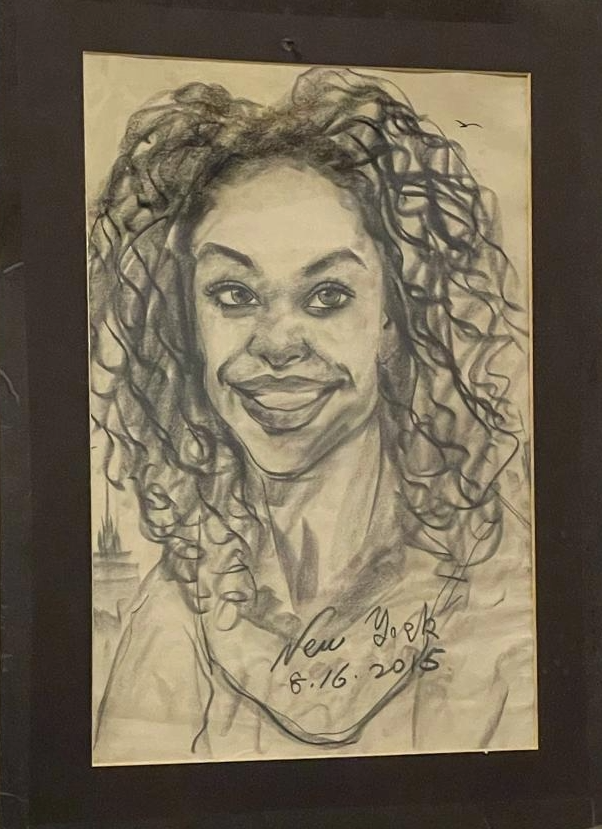 New York
8.16.2015